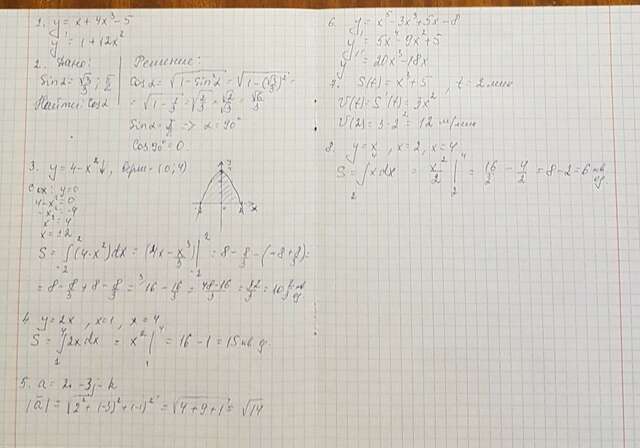 1. y = x + 4x³ - 5
y' = 1 + 12x²
2. Дано:
sin α = √3/3 ; π/2
Найти: cos α
Решение:
cos α = √(1 - sin²α) = √(1 - (√3/3)²) =
= √(1 - 1/3) = √(2/3) = √2/√3 = √6/3
cos 90° = 0
3. y = 4 - x² ↓, верш - (0; 4)
с ox: y = 0
4 - x² = 0
-x² = -4
x² = 4
x = ±2
S = ∫₋₂² (4 - x²)dx = (4x - x³/3)|₋₂² = 8 - 8/3 - (-8 + 8/3) =
= 8 - 8/3 + 8 - 8/3 = 16 - 16/3 = (48 - 16)/3 = 32/3 =
4. y = 2x , x = 1 , x = 4
S = ∫₁⁴ 2x dx = x²|₁⁴ = 16 - 1 = 15 кв ед.
5. a = 2i - 3j - k
|a̅| = √(2² + (-3)² + (-1)²) = √(4 + 9 + 1) = √14
6. y = x⁵ - 3x³ + 5x - 8
y' = 5x⁴ - 9x² + 5
y'' = 20x³ - 18x
7. S(t) = x³ + 5 , t = 2 мин
V(t) = S'(t) = 3x²
V(2) = 3·2² = 12 м/мин
8. y = x , x = 2, x = 4
S = ∫₂⁴ x dx = x²/2 |₂⁴ = 16/2 - 4/2 = 8 - 2 = 6 кв ед